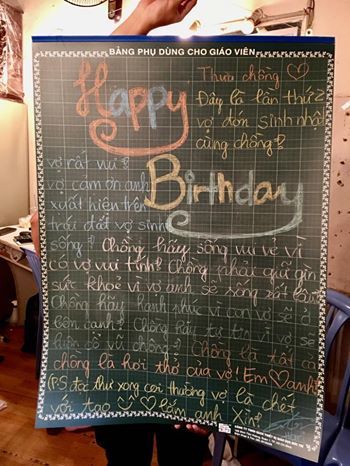 BẢNG PHỤ DÙNG CHO GIÁO VIÊN
Happy
Birthday
Thưa chồng ♡
Đây là lần thứ 2
vợ đón sinh nhật
cùng chồng?
vợ rất vui?
vợ cảm ơn anh
xuất hiện trên
trái đất vợ sinh
sống? Chồng hãy sống vui vẻ vì
có vợ vui tính? Chồng phải giữ gìn
sức khoẻ vì vợ anh sẽ sống rất lâu?
Chồng hãy hạnh phúc vì con vợ sẽ ở
bên cạnh? Chồng hãy tự tin vì vợ sẽ
luôn đó vũ chồng? Chồng là tất cả
chồng là hơi thở của vợ! Em ♡ anh!
(P.S: đọc thư xong coi thường vợ là chết
với tao ♡ hôm anh Xỉn?